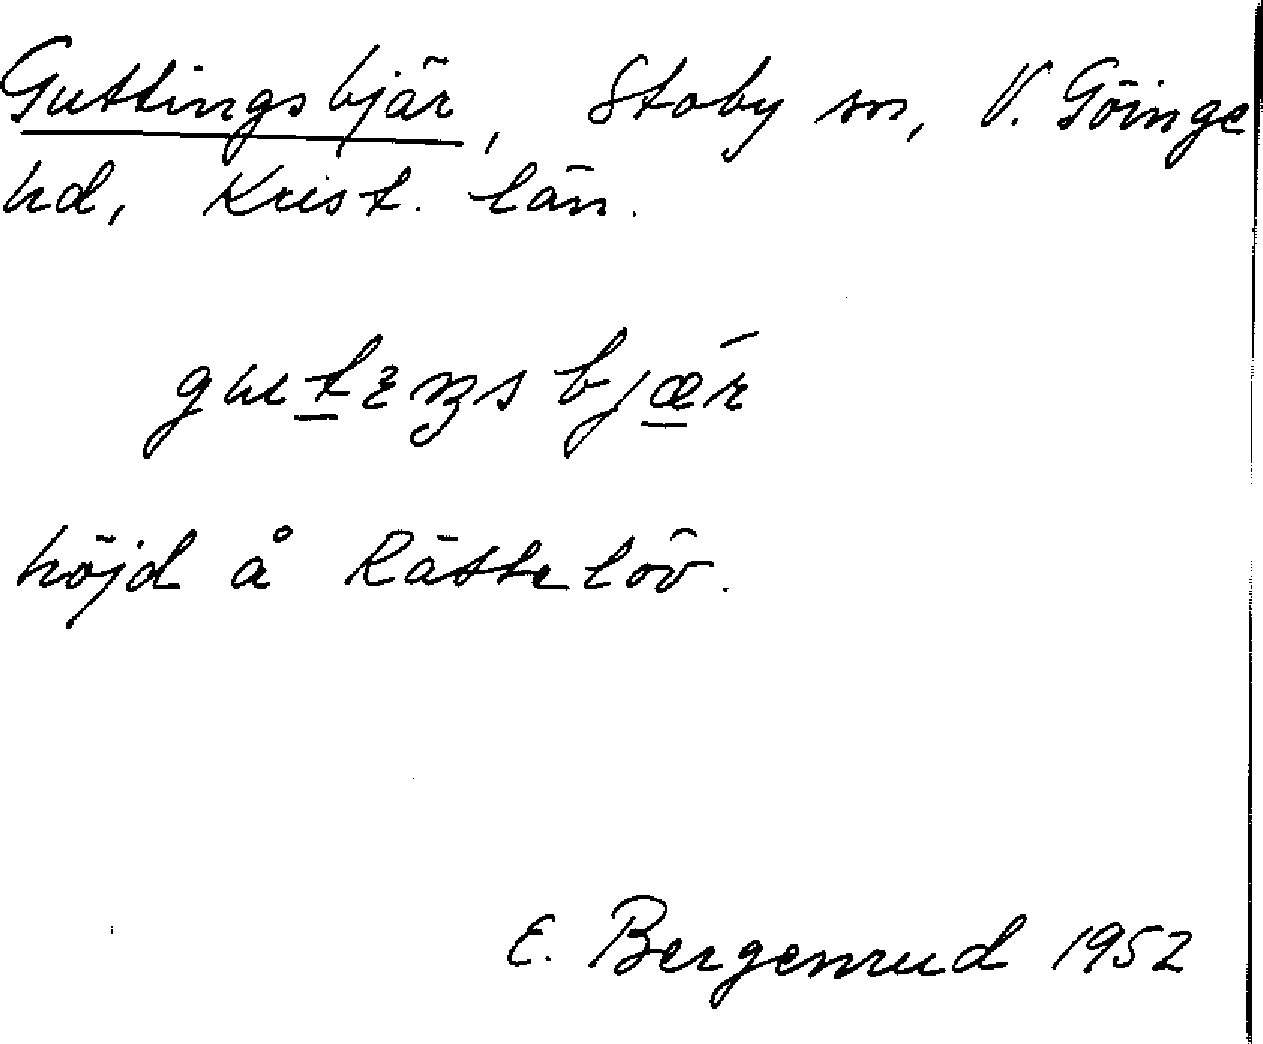 Guttingsbjär, Stoby sn, V. Göinge
hd, Krist. län.
höjd å Rättelöv.
E. Bergenrud 1952